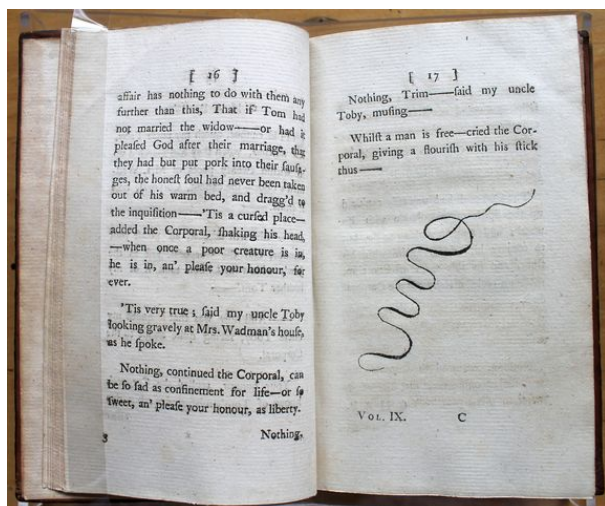 [ 16 ]
affair has nothing to do with them any
further than this, That if Tom had
not married the widow——or had it
pleaſed God after their marriage, that
they had but put pork into their ſauſa-
ges, the honeſt ſoul had never been taken
out of his warm bed, and dragg'd to
the inquiſition——'Tis a curſed place—
added the Corporal, ſhaking his head,
—when once a poor creature is in,
he is in, an' pleaſe your honour, for
ever.
'Tis very true; ſaid my uncle Toby
looking gravely at Mrs. Wadman's houſe,
as he ſpoke.
Nothing, continued the Corporal, can
be ſo ſad as confinement for life—or ſo
ſweet, an' pleaſe your honour, as liberty.
Nothing,
[ 17 ]
Nothing, Trim——ſaid my uncle
Toby, muſing——
Whilſt a man is free—cried the Cor-
poral, giving a flouriſh with his ſtick
thus——
VOL. IX. C